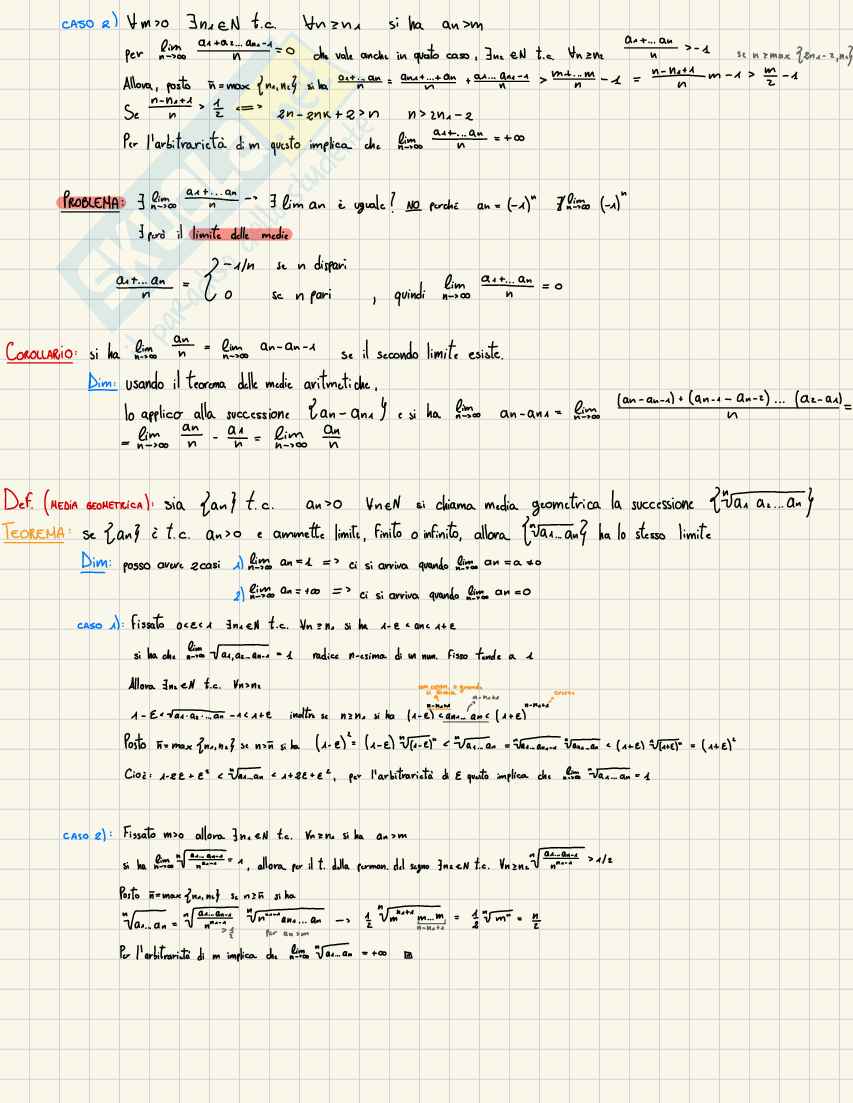 CASO 2) ∀m>0 ∃n₁∈N t.c. ∀n≥n₁ si ha an>m
per lim n→∞ (a₁+a₂...an₁-1)/n = 0 che vale anche in questo caso, ∃n₂∈N t.c. ∀n≥n₂ (a₁+...an)/n > -1 se n≥max{2n₁-2,n₂}
Allora, posto n̄=max{n₁,n₂} si ha (a₁+...an)/n = (an₁+...+an)/n + (a₁...an₁-1)/n > (m+...m)/n - 1 = (n-n₁+1)/n m-1 > m/2 -1
Se (n-n₁+1)/n > 1/2 <=> 2n-2nx+2>n n>2n₁-2
Per l'arbitrarietà di m questo implica che lim n→∞ (a₁+...an)/n = +∞
PROBLEMA: ∃ lim n→∞ (a₁+...an)/n -> ∃ lim an è uguale? NO perché an=(-1)ⁿ ∄ lim n→∞ (-1)ⁿ
∃ però il limite delle medie
(a₁+...an)/n = { -1/n se n dispari
0 se n pari , quindi lim n→∞ (a₁+...an)/n = 0
COROLLARIO: si ha lim n→∞ an/n = lim n→∞ an-an-1 se il secondo limite esiste.
Dim: usando il teorema delle medie aritmetiche,
lo applico alla successione {an-an1} e si ha lim n→∞ an-an1 = lim n→∞ ((an-an-1)+(an-1-an-2)...(a2-a1))/n =
= lim n→∞ an/n - a1/n = lim n→∞ an/n
Def. (MEDIA GEOMETRICA): sia {an} t.c. an>0 ∀n∈N si chiama media geometrica la successione {ⁿ√a₁ a₂...an}
TEOREMA: se {an} è t.c. an>0 e ammette limite, finito o infinito, allora {ⁿ√a₁...an} ha lo stesso limite
Dim: posso avere 2 casi 1) lim n→∞ an=1 => ci si arriva quando lim n→∞ an=a≠0
2) lim n→∞ an=+∞ => ci si arriva quando lim n→∞ an=0
CASO 1): Fissato 0<ε<1 ∃n₁∈N t.c. ∀n≥n₁ si ha 1-ε<an<1+ε
si ha che lim n→∞ ⁿ√a₁,a₂...an₁-1 = 1 radice n-esima di un num. fisso tende a 1
Allora ∃n₂∈N t.c. ∀n>n₂
1-ε<ⁿ√a₁·a₂·...an₁-1<1+ε inoltre se n≥n₁ si ha (1-ε)ⁿ⁻ⁿ¹⁺¹ < an₁...an < (1+ε)ⁿ⁻ⁿ¹⁺¹
Posto n̄=max{n₁,n₂} se n>n̄ si ha (1-ε)²=(1-ε) ⁿ√(1-ε)ⁿ < ⁿ√a₁...an = ⁿ√a₁...an₁-1 ⁿ√an₁...an < (1+ε) ⁿ√(1+ε)ⁿ = (1+ε)²
Cioè: 1-2ε+ε² < ⁿ√a₁...an < 1+2ε+ε², per l'arbitrarietà di ε questo implica che lim n→∞ ⁿ√a₁...an = 1
CASO 2): Fissato m>0 allora ∃n₁∈N t.c. ∀n≥n₁ si ha an>m
si ha lim n→∞ ⁿ√(a₁...an₁-1)/mⁿ¹⁻¹ = 1, allora per il t. della perman. del segno ∃n₂∈N t.c. ∀n≥n₂ ⁿ√(a₁...an₁-1)/mⁿ¹⁻¹ > 1/2
Posto n̄=max{n₁,n₂} se n≥n̄ si ha
ⁿ√a₁...an = ⁿ√(a₁...an₁-1)/mⁿ¹⁻¹ ⁿ√mⁿ¹⁻¹ an₁...an -> 1/2 ⁿ√mⁿ¹⁺¹ m...m = 1/2 ⁿ√mⁿ = n/2
>1/2 per an>m n-n₁+1
Per l'arbitrarietà di m implica che lim n→∞ ⁿ√a₁...an = +∞